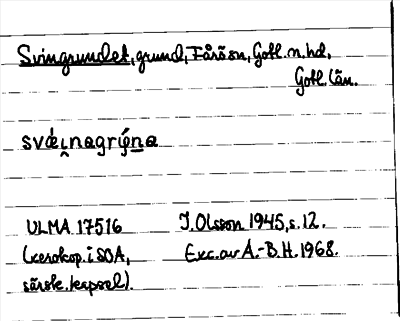 Svingrundet, grund, Fårö sn, Gotl. n. hd,
Gotl. län.
svǽi̯nagrýn̲a
ULMA 17516 J. Olsson 1945, s. 12.
(xerokop. i SOA, Exc. av A.-B. H. 1968.
särsk. kapsel).